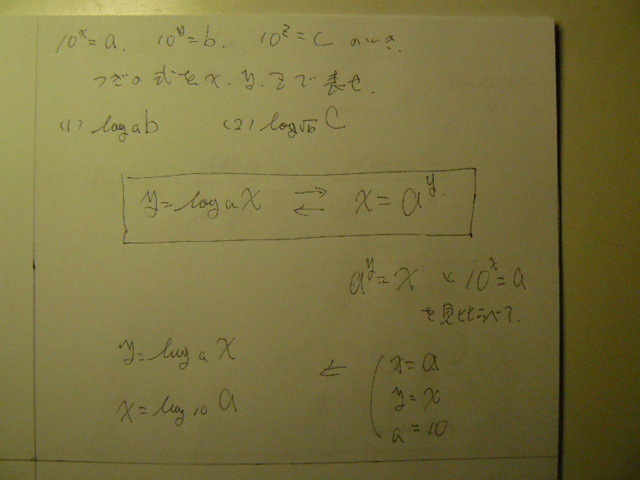 10ˣ=a. 10ʸ=b. 10ᶻ=c のとき.
つぎの式を x. y. z で表せ.
(1) log a b (2) log √b C
y=log a x ⇄ x=aʸ.
aʸ=x と 10ˣ=a
を見くらべて.
y=log a x ← x=a
y=x
x=log 10 a a=10